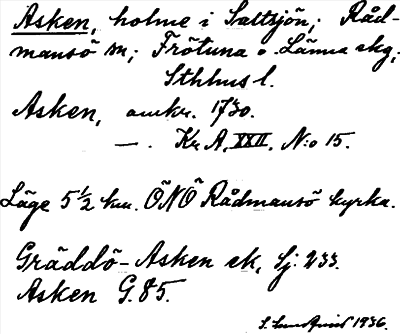 Asken, holme i Saltsjön; Råd-
mansö sn; Frötuna o. Länna skg;
Sthlms l.
Asken, omkr. 1730.
—. Kr A, XXII, N:o 15.
Läge 5 1/2 km. ÖNÖ Rådmansö kyrka.
Gräddö-Asken ek, Sj: 233.
Asken G. 85.
1936.